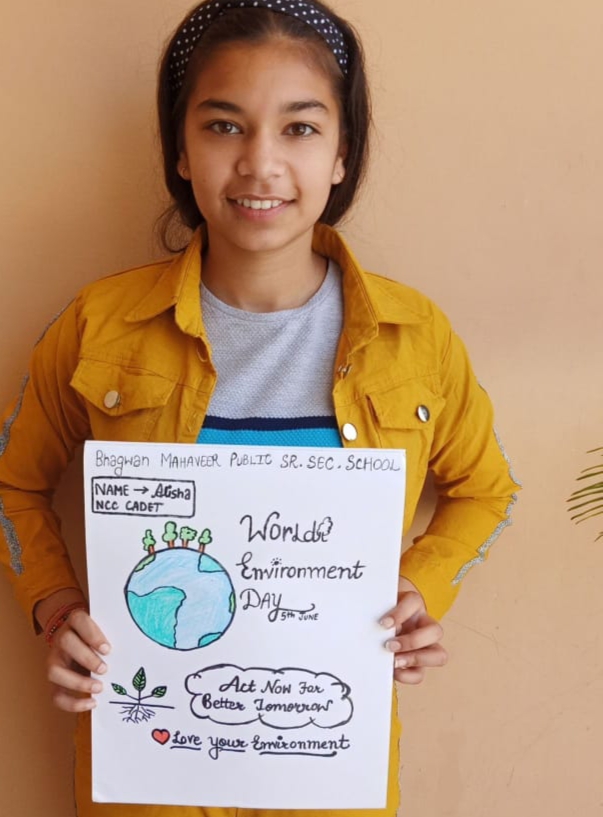 Bhagwan MAHAVEER PUBLIC SR. SEC. SCHOOL
NAME → Alisha
NCC CADET
World
Environment
DAY
5th JUNE
Act Now For
Better Tomorrow
Love your Environment